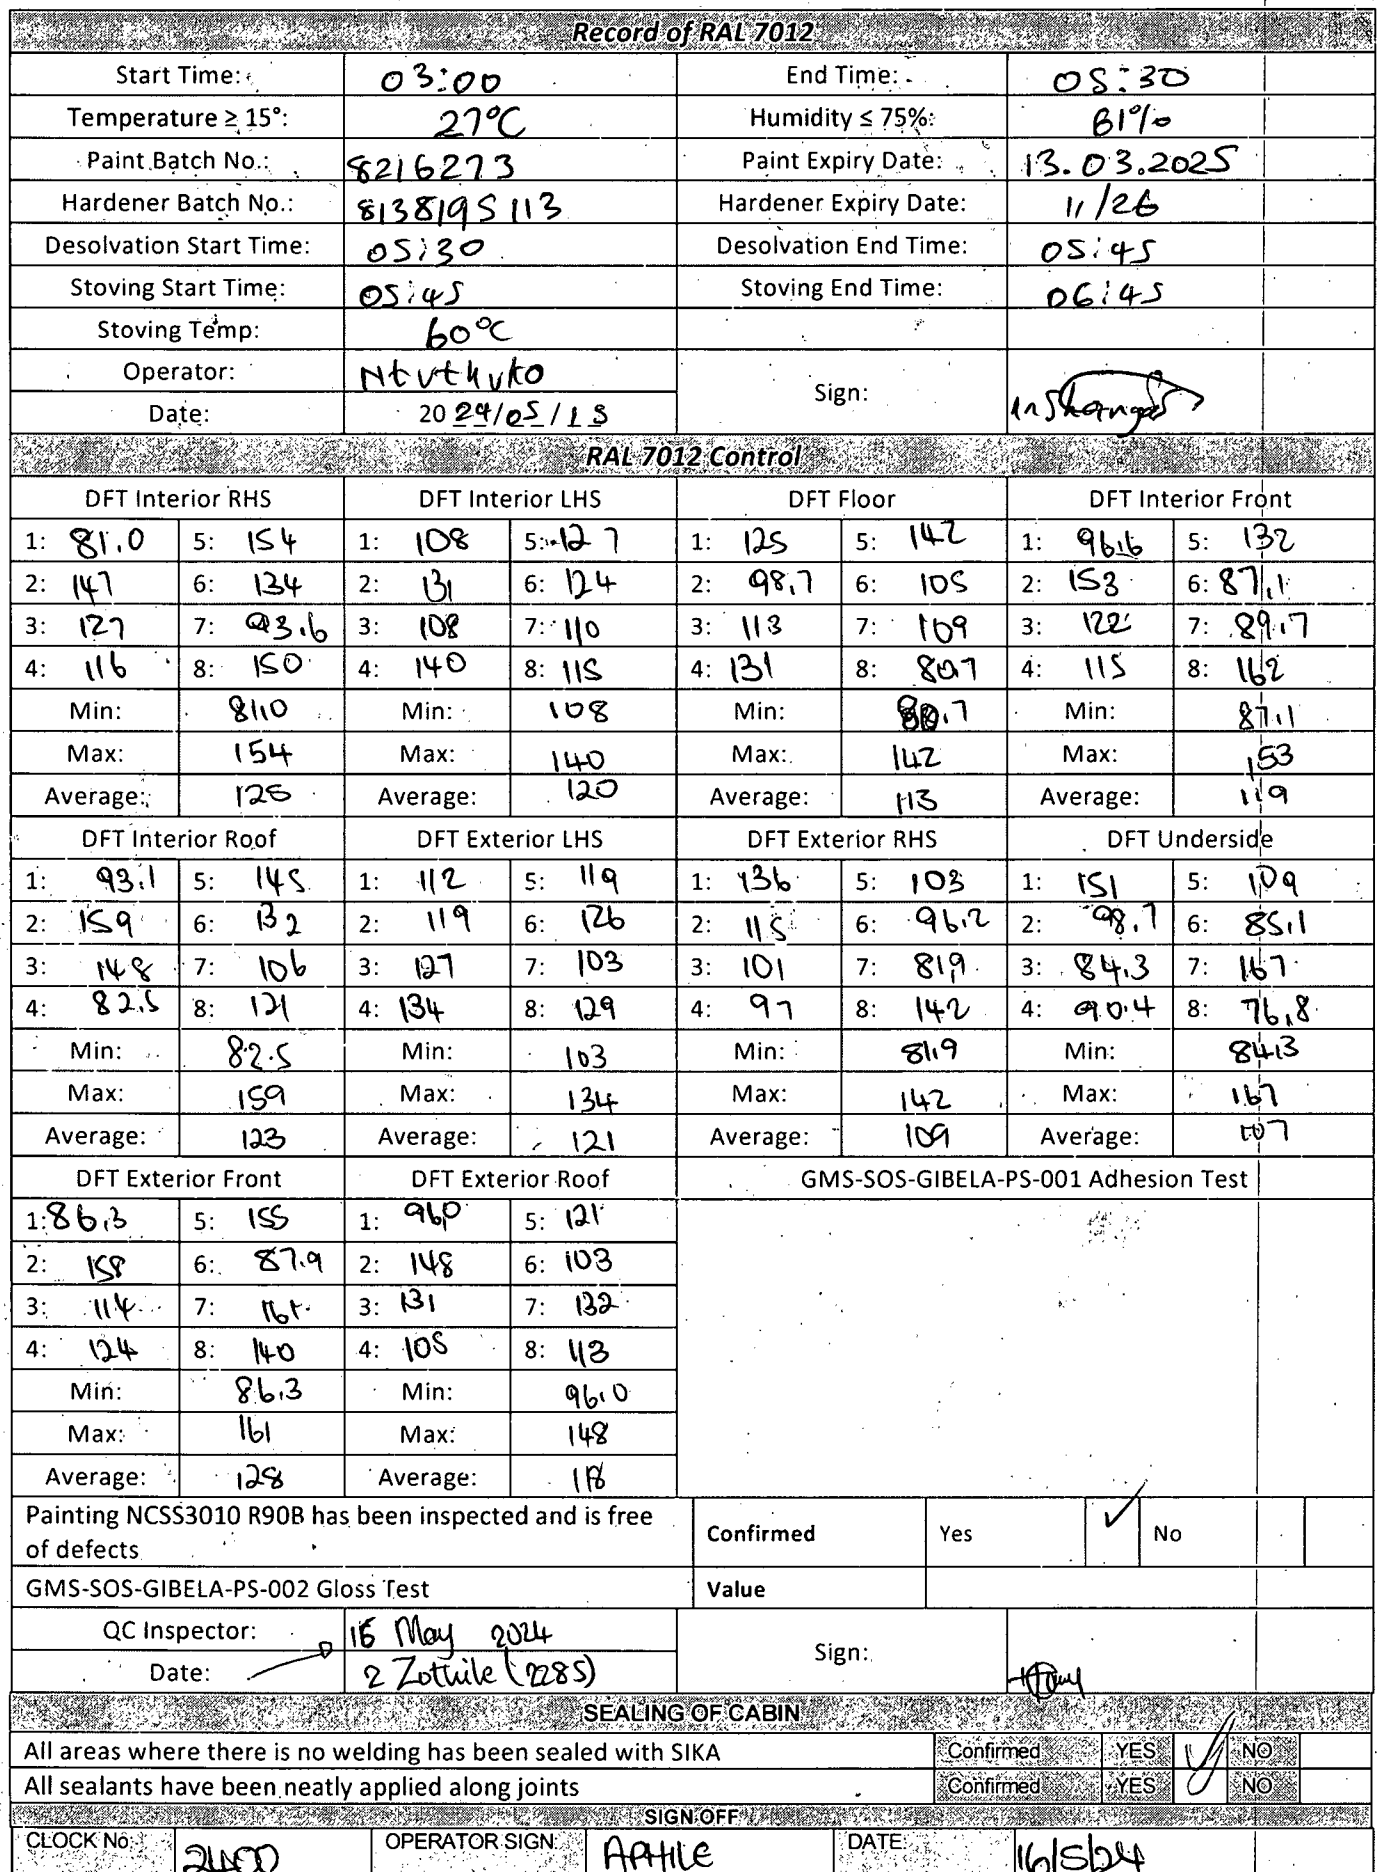 Record of RAL 7012
Start Time: 03:00 End Time: 05:30
Temperature ≥ 15°: 27°C Humidity ≤ 75%: 61%
Paint Batch No.: 8216273 Paint Expiry Date: 13.03.2025
Hardener Batch No.: 8138195113 Hardener Expiry Date: 11/26
Desolvation Start Time: 05:30 Desolvation End Time: 05:45
Stoving Start Time: 05:45 Stoving End Time: 06:45
Stoving Temp: 60°C
Operator: Ntuthuko Sign:
Date: 2024/05/15
RAL 7012 Control
DFT Interior RHS DFT Interior LHS DFT Floor DFT Interior Front
1: 81.0 5: 154 1: 108 5: 127 1: 125 5: 142 1: 96.6 5: 132
2: 147 6: 134 2: 131 6: 124 2: 98.7 6: 105 2: 153 6: 87.1
3: 127 7: 93.6 3: 108 7: 110 3: 113 7: 109 3: 122 7: 89.7
4: 116 8: 150 4: 140 8: 115 4: 131 8: 80.7 4: 115 8: 162
Min: 81.0 Min: 108 Min: 80.7 Min: 87.1
Max: 154 Max: 140 Max: 142 Max: 153
Average: 125 Average: 120 Average: 113 Average: 119
DFT Interior Roof DFT Exterior LHS DFT Exterior RHS DFT Underside
1: 93.1 5: 145 1: 112 5: 119 1: 136 5: 103 1: 151 5: 109
2: 159 6: 132 2: 119 6: 126 2: 115 6: 96.2 2: 98.7 6: 85.1
3: 148 7: 106 3: 127 7: 103 3: 101 7: 81.9 3: 84.3 7: 167
4: 82.5 8: 121 4: 134 8: 129 4: 97 8: 142 4: 90.4 8: 76.8
Min: 82.5 Min: 103 Min: 81.9 Min: 84.3
Max: 159 Max: 134 Max: 142 Max: 167
Average: 123 Average: 121 Average: 109 Average: 107
DFT Exterior Front DFT Exterior Roof GMS-SOS-GIBELA-PS-001 Adhesion Test
1: 86.3 5: 155 1: 96.0 5: 121
2: 158 6: 87.9 2: 148 6: 103
3: 114 7: 161 3: 131 7: 132
4: 124 8: 140 4: 105 8: 113
Min: 86.3 Min: 96.0
Max: 161 Max: 148
Average: 128 Average: 118
Painting NCSS3010 R90B has been inspected and is free
of defects Confirmed Yes ✓ No
GMS-SOS-GIBELA-PS-002 Gloss Test Value
QC Inspector: 16 May 2024 Sign:
Date: 2 Zothile (2285)
SEALING OF CABIN
All areas where there is no welding has been sealed with SIKA Confirmed YES ✓ NO
All sealants have been neatly applied along joints Confirmed YES NO
SIGN OFF
CLOCK No: 2400 OPERATOR SIGN: APHILE DATE: 16/5/24